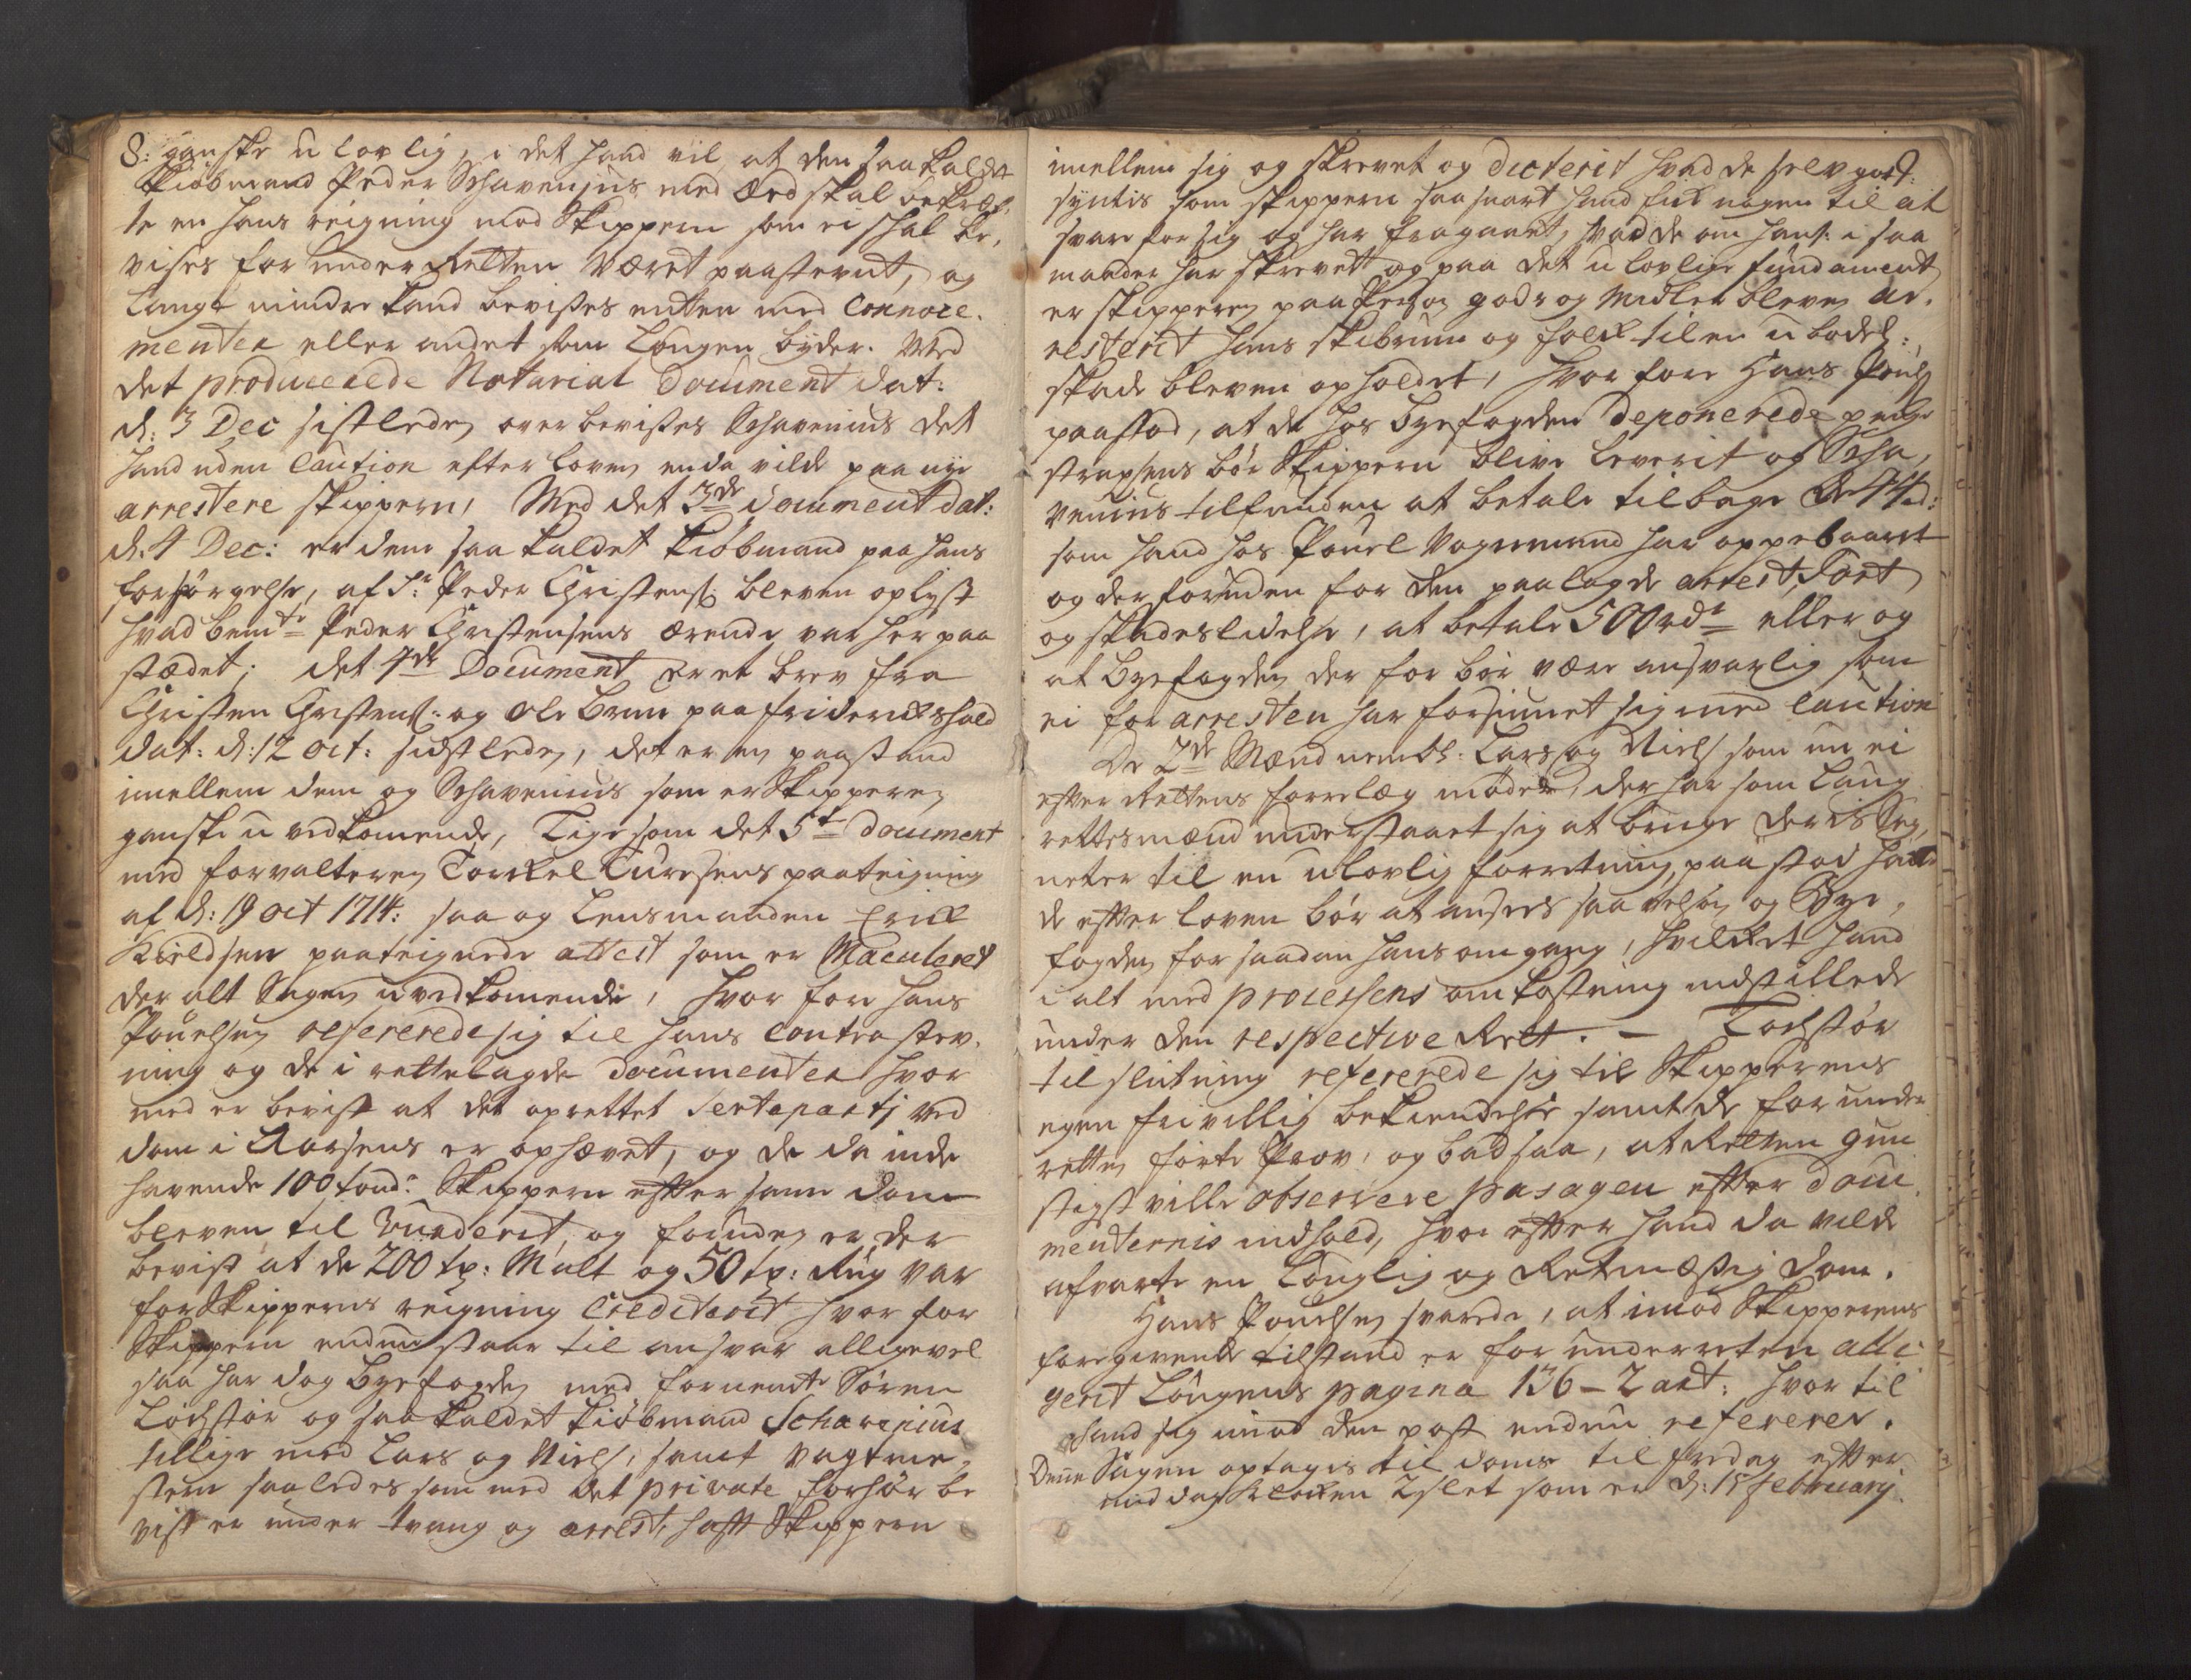 8: ganske u lovlig, i det hand vil at den saa kaldet
Kiøbmand Peder Schavenius med Æed skal bekræf,
te en hans reigning mod Skipperen som ei skal be,
vises for under Retten været paastevnt, og
langt mindre kand bevises enten med Connoce.
menter eller andet som Lougen byder. Med
det producerede Notarial Document dat:
d: 3 Dec sistleden over bevises Schavenius det
hand uden Caution efter loven enda vilde paa nye
arrestere skipperen, Med det 3de document dat:
d: 4 Dec: er dem saa kaldet Kiøbmand paa hans
forspørgelse, af Sr: Peder Christens: bleven oplyst
hvad bemte Peder Christensens ærende var her paa
stædet; det 4de Document er et brev fra
Christen Christens: og Ole Brun paa Friderichshald
dat: d: 12 oct: sidstleden, det er en paastand
imellem dem og Schavenius som er Skipperen
ganske u vedkomende, Lige som det 5te document
med forvalteren Torckel Turesens paateigning
af d: 19 oct 1714: saa og Lensmanden Erick
Kieldsen paateignede attest som er Maculeret
der alt Sagen u vedkomende, hvor fore Hans
Pouelsen refererede sig til hans contra stev,
ning og de i rettelagde documenter hvor
med er bevist at det oprettet Sertepartj ved
dom i Aarsens er ophævet, og de da inde
havende 100 tønd: Skipperen efter samme dom
bleven til Vurderit, og foruden er der
bevist at de 200 tp: Malt og 50 tp: Rug var
for Skipperens reigning Crediterit hvor for
Skipperen endnu staar til ansvar alligevel
saa har dog byefogden med fornemte Søren
Lochstør og saa kaldet Kiøbmand Schavenius
tillige med Lars og Niels, samt vagtme,
stern saaledes som med det private forhør be
vist er under tvang og arrest, hafft Skippern
imellem sig og skrevet og dicterit hvad de selv godt:
syntis som skipperen saa snart hand fik nogen til at
svare for sig og har fragaaet, hvad de om hans i saa
maader har skrevet og paa det u lovlige fundament
er skipperen paa Person gods og Midler bleven ar,
resterit hans skibrum og folck til en u bodel:
skade bleven opholdet, hvor fore Hans Pouels
paastod, at de hos byefogden deponerede penge
strax bør Skippern blive leverit og Scha,
venius tilfunden at betale tilbage de 44 d:
som hand hos Pouel Vognmand har oppebaaret
og der foruden for den paalagde arrest, Tort
og skadeslidelse, at betale 500 rdr eller og
at byefogden der for bør være ansvarlig som
ei for arresten har forsiunet sig med Caution
De 2de Mænd nembl: Lars og Niels som nu ei
efter Rettens forrelæg møder, der har som laug
rettesmænd understaaet sig at bruge deris Sig,
neter til en ulovlig forretning, paastod hand
de efter loven bør at ansees saa vel som og Bye,
fogden for saadan hans omgang, hvilket hand
i alt med processens omkostning indstillede
under den respective Rett. — Lochstør
til slutning refererede sig til Skipperens
egen frivillig bekiendelse samt de for under
retten førte Prov, og bad saa, at Retten gun
stigst ville observere pasagen efter docu
menternis indhold, hvor efter hand da vilde
afvarte en Louglig og Retmæssig dom.
Hans Pouelsen svarede, at imod Skipperens
foregivende tilstand er for underretten alle,
gerit Lougens pagina 136 – 2 art: hvor til
hand sig imod den post endnu referere.
Denne Sagen optages til doms til fredag efter
mid dag klocken 2 slet som er d: 15 February.